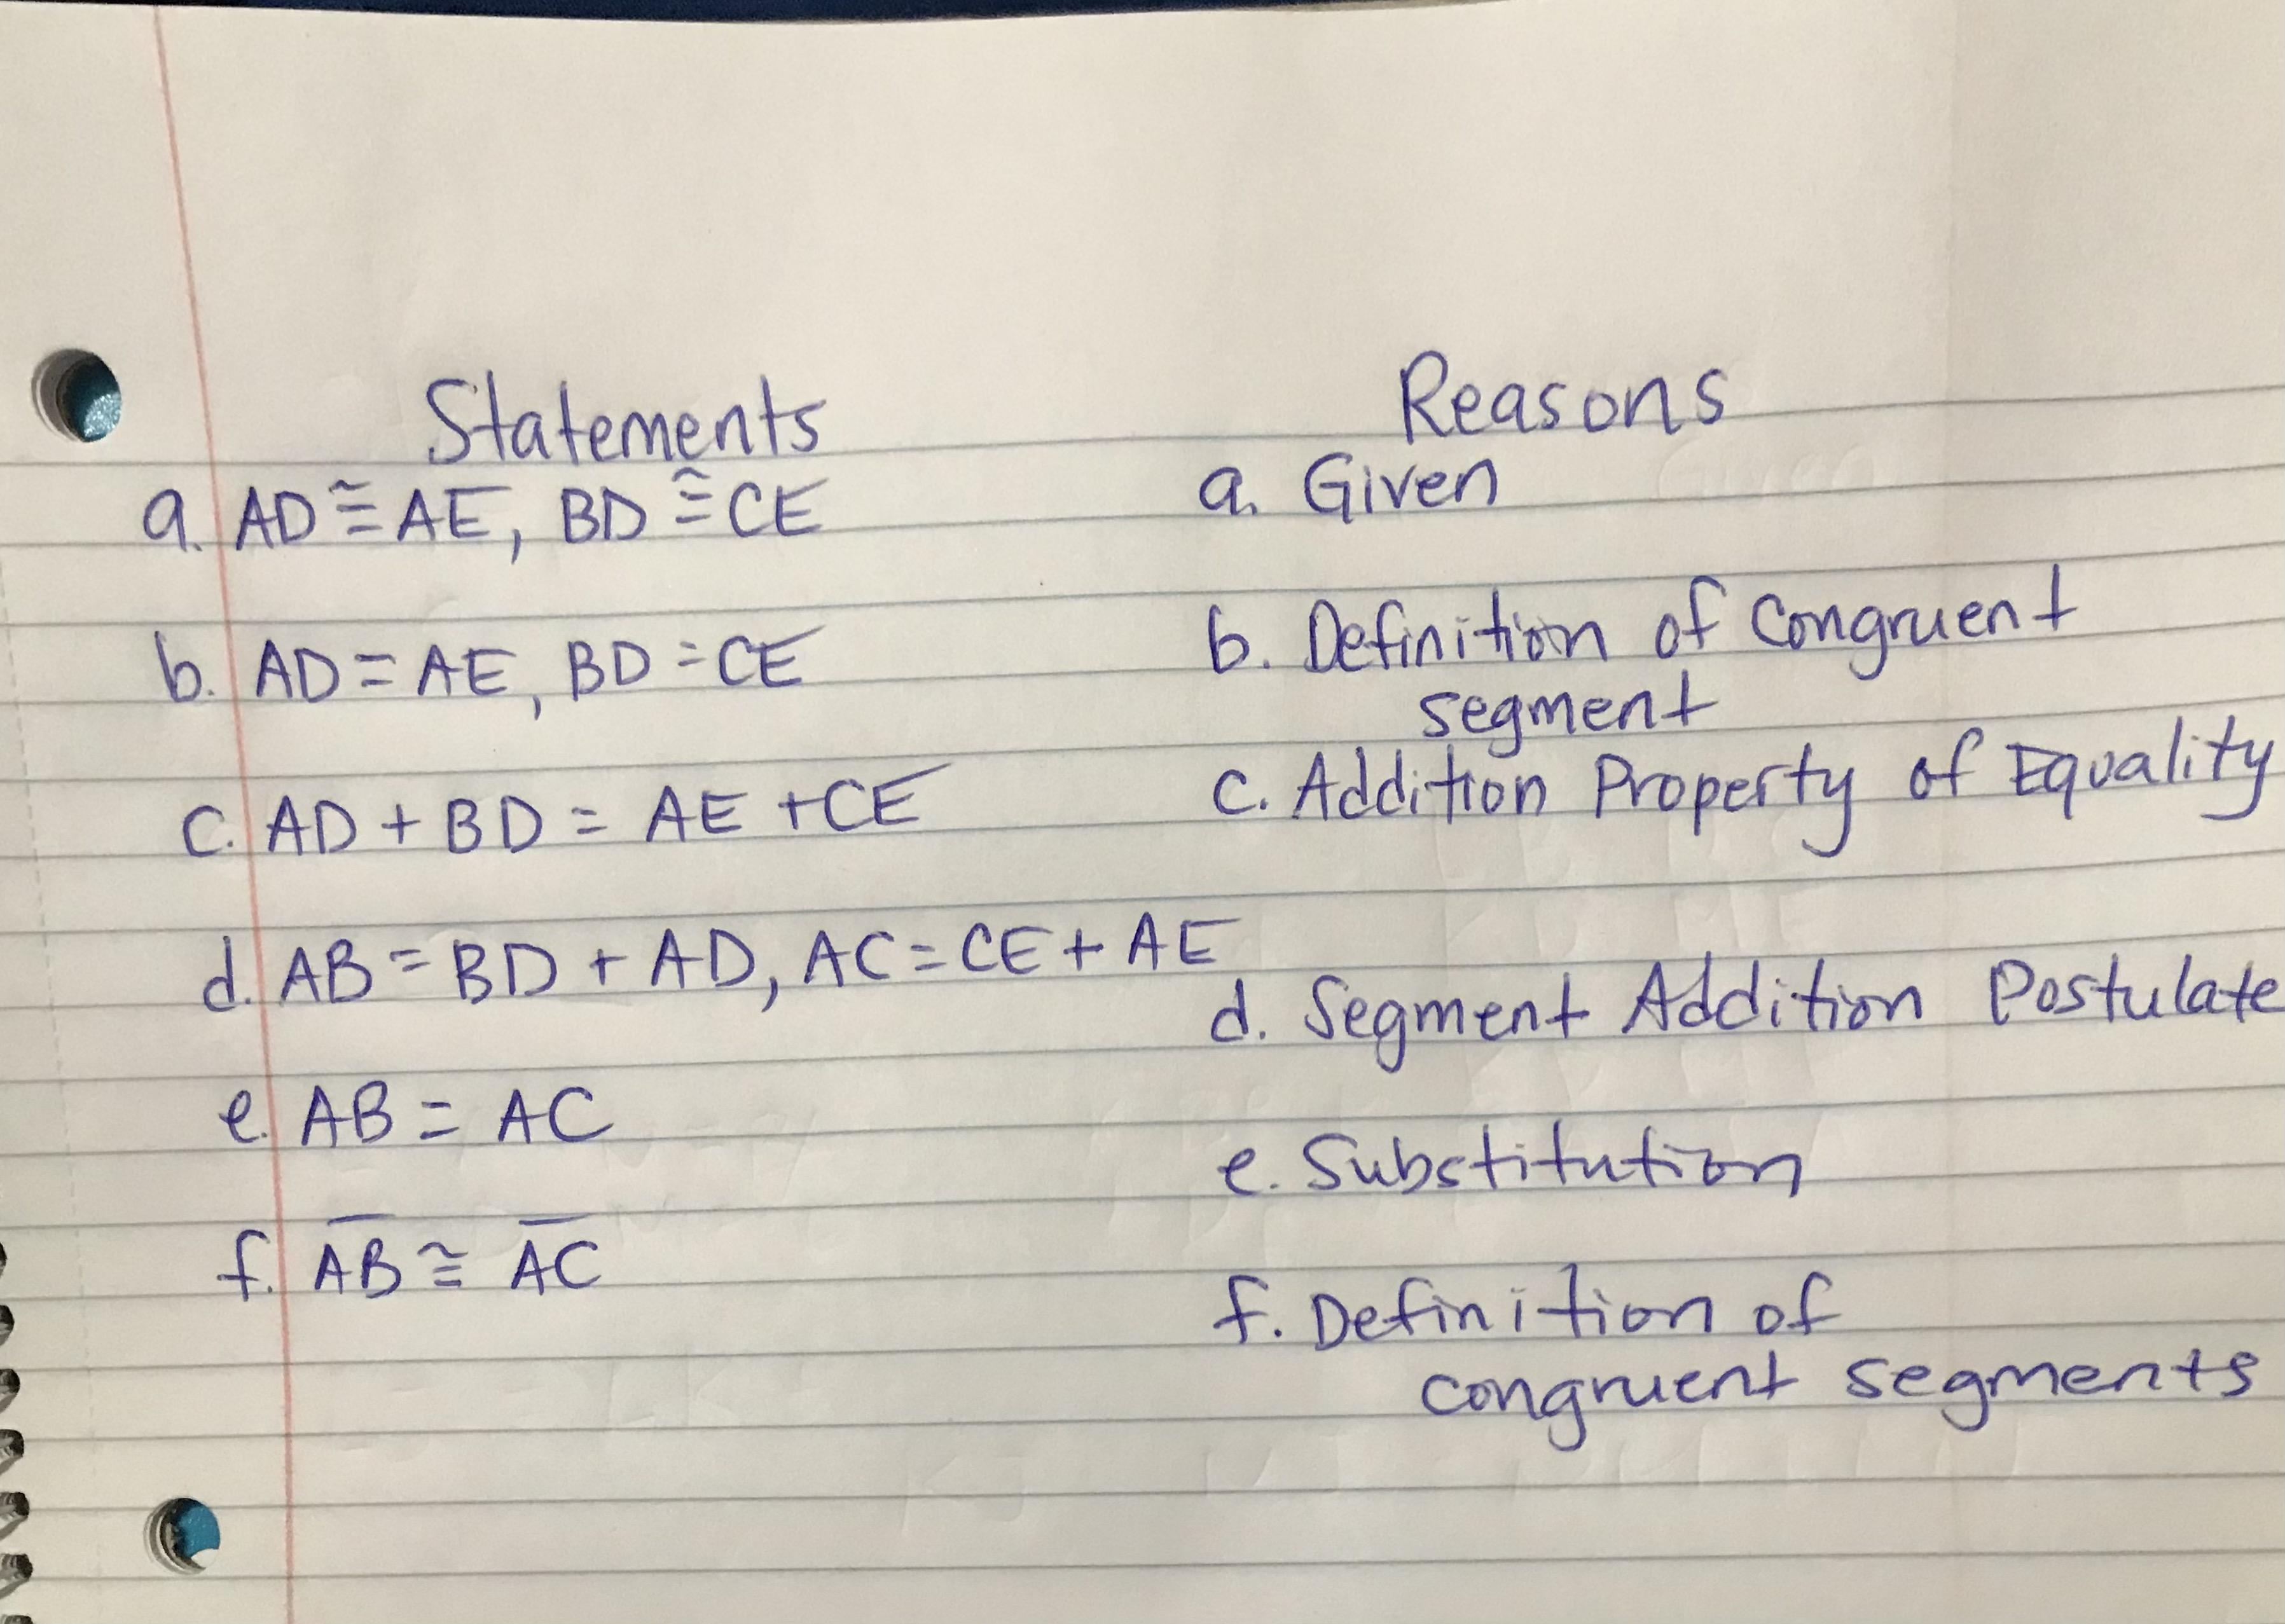 Statements
Reasons
a. AD ≅ AE, BD ≅ CE
a. Given
b. AD = AE, BD = CE
b. Definition of Congruent
segment
c. AD + BD = AE + CE
c. Addition Property of Equality
d. AB = BD + AD, AC = CE + AE
d. Segment Addition Postulate
e. AB = AC
e. Substitution
f. A̅B̅ ≅ A̅C̅
f. Definition of
congruent segments